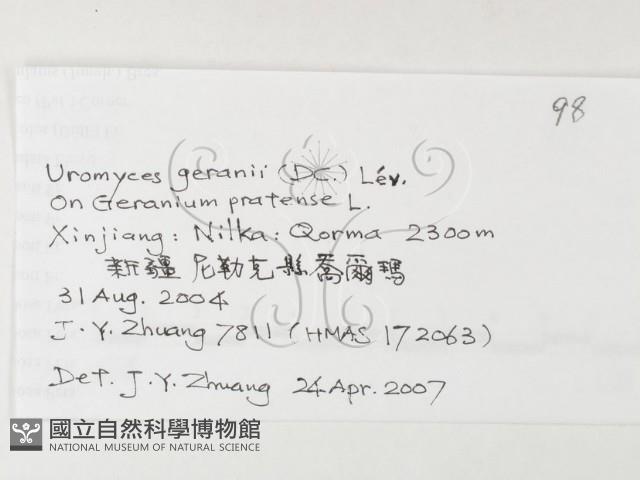 98
Uromyces geranii (DC.) Lév.
On Geranium pratense L.
Xinjiang: Nilka: Qorma 2300m
新疆 尼勒克縣喬爾瑪
31 Aug. 2004
J. Y. Zhuang 7811 (HMAS 172063)
Det. J. Y. Zhuang 24 Apr. 2007
國立自然科學博物館
NATIONAL MUSEUM OF NATURAL SCIENCE